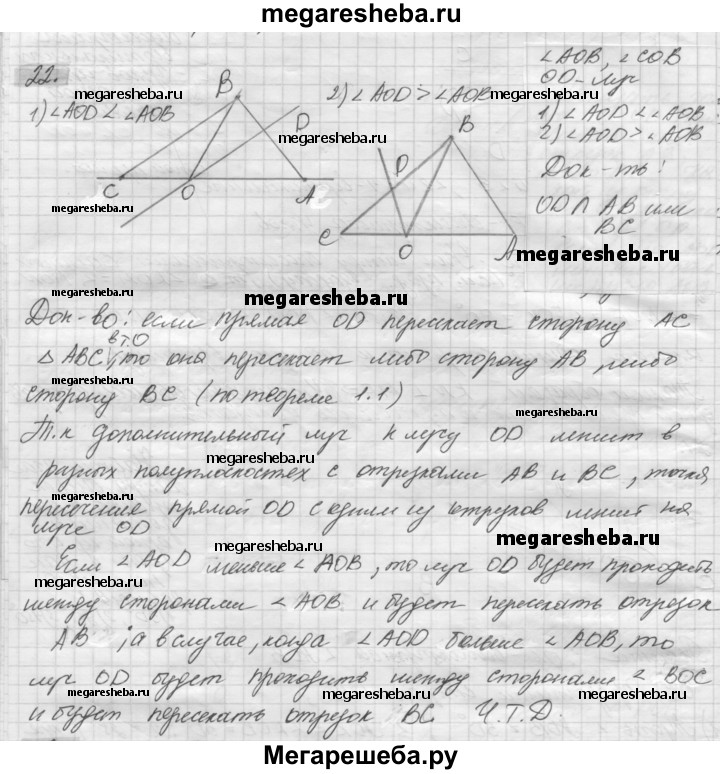 megaresheba.ru
22.
megaresheba.ru
1) ∠AOD < ∠AOB
B
D
C
O
A
megaresheba.ru
megaresheba.ru
2) ∠AOD > ∠AOB
megaresheba.ru
B
D
C
O
A
∠AOB, ∠COB
OD - луч
1) ∠AOD < ∠AOB
2) ∠AOD > ∠AOB
Док-ть:
OD ∩ AB или
BC
megaresheba.ru
megaresheba.ru
Док-во: если прямая OD пересекает сторону AC
в т.О
△ABC, то она пересекает либо сторону AB, либо
сторону BC (по теореме 1.1)
megaresheba.ru
Т.к дополнительный луч к лучу OD лежит в
megaresheba.ru
разных полуплоскостях с отрезками AB и BC, точка
megaresheba.ru
пересечение прямой OD с одним из отрезков лежит на
луче OD
megaresheba.ru
megaresheba.ru
Если ∠AOD меньше ∠AOB, то луч OD будет проходить
megaresheba.ru
между сторонами ∠AOB и будет пересекать отрезок
AB; а в случае, когда ∠AOD больше ∠AOB, то
луч OD будет проходить между сторонами ∠BOC
megaresheba.ru
megaresheba.ru
и будет пересекать отрезок BC Ч.Т.Д.
Мегарешеба.ру